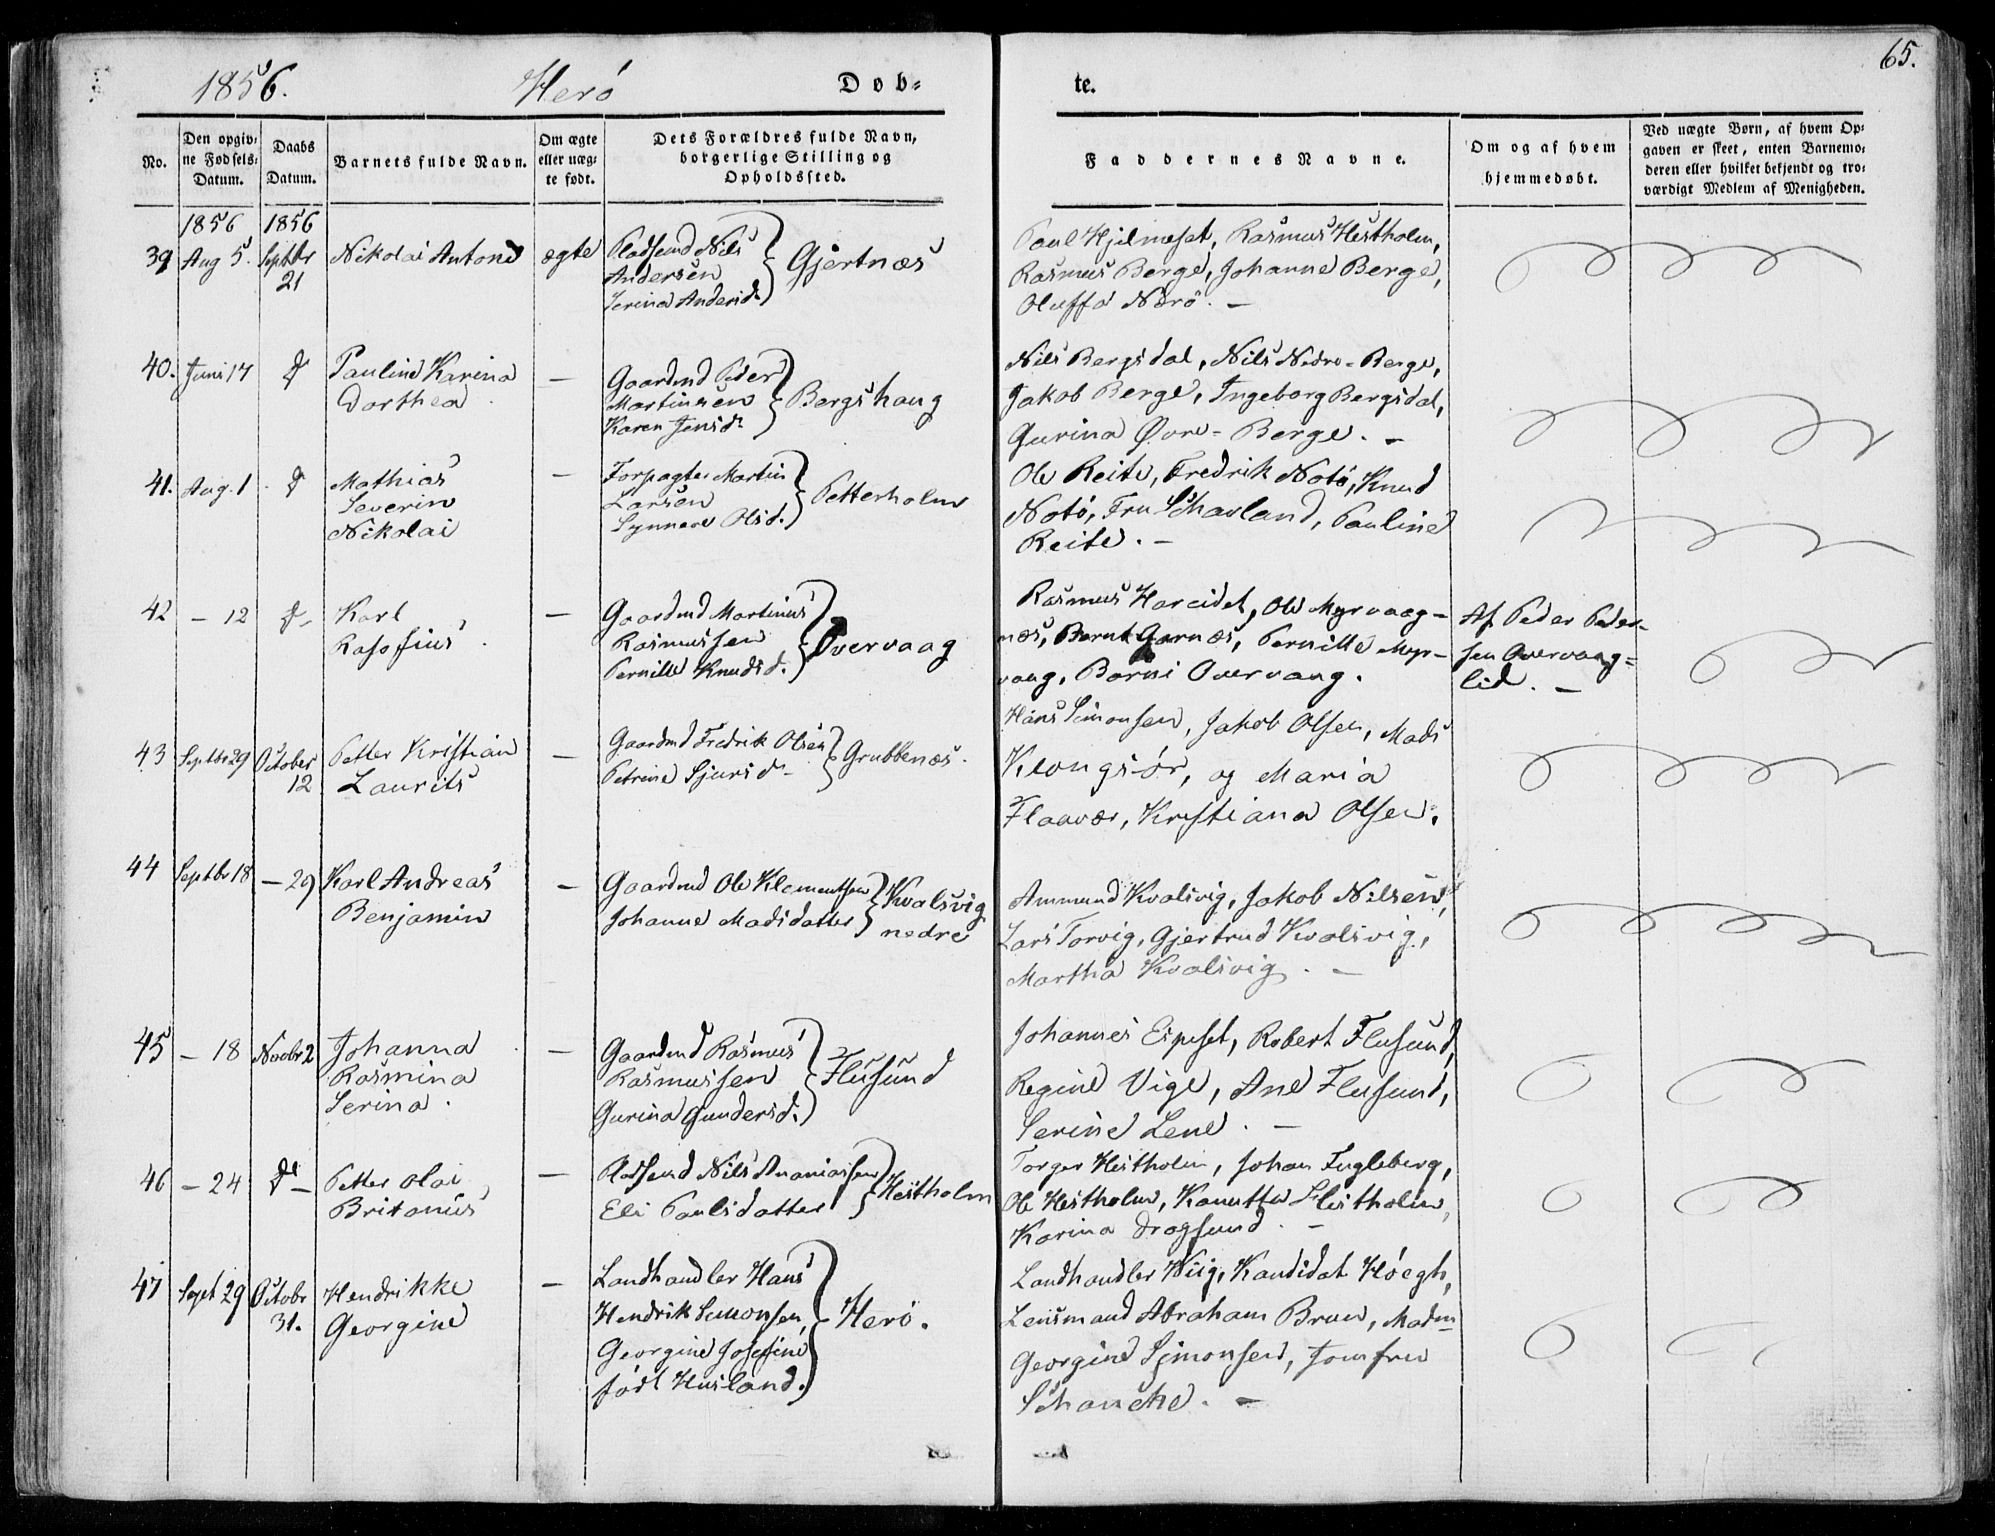 1856. Herö Døb-
te. 65.
No. Den opgiv- ne Fødsels- Datum. Daabs Datum. Barnets fulde Navn. Om ægte eller uæg- te født. Dets Forældres fulde Navn, borgerlige Stilling og Opholdssted.
Faddernes Navne. Om og af hvem hjemmedøbt. Ved uægte Børn, af hvem Op- gaven er skeet, enten Barnemo- deren eller hvilket bekjendt og tro- værdigt Medlem af Menigheden.
1856 1856
39 Aug 5. Septbr 21 Nikolai Antone ægte Pladsmd Nils
Andersen
Serina Andersd. Gjertnæs
Paul Hjelmeset, Rasmus Hestholm,
Rasmus Berge, Johanne Berge,
Oluffa Nærö. —
40. Juni 17 d Pauline Karina
Dorthea — Gaardmd Peder
Martinsen
Karen Jensd. Bergshaug
Nils Bergsdal, Nils Nedre-Berge,
Jakob Berge, Ingeborg Bergsdal,
Gurina Øvre-Berge. —
41. Aug. 1 d Mathias
Severin
Nikolai — Forpagter Martin
Larsen
Synneve Olsd. Petterholm
Ole Reite, Fredrik Notö, Knud
Notö, Fru Schavland, Pauline
Reite. —
42 — 12 d Karl
— Gaardmd Martinus
Rasmussen
Pernille Knudsd. Overvaag
Rasmus Hareidet, Ole Myrvaag-
næs, Bernt Garnæs, Pernille Myr-
vaag, Barni Overvaag.
Af Peder Peder-
sen Overvaag-
lid. —
43 Septbr 29 October 12 Petter Kristian
Laurits — Gaardmd Fredrik Olsen
Petrine Sjursd. Grubbenæs.
Hans Simonsen, Jakob Olsen, Mads
Klongsör, og Maria
Flaavær, Kristiana Olsen.
44 Septbr 18 — 29 Karl Andreas
Benjamin — Gaardmd Ole Klementsen
Johanne Madsdatter Kvalsvig
nedre
Ammund Kvalsvig, Jakob Nilsen,
Lars Torvig, Gjertrud Kvalsvig,
Martha Kvalsvig. —
45 — 18 Novbr 2 Johanna
Rasmina
Serina. — Gaardmd Rasmus
Rasmussen
Gurina Gundersd. Flusund
Johannes Espeset, Robert Flusund,
Regine Vige, Ane Flusund,
Serine Lene. —
46 — 24 d — Petter Olai
Britanus — Pladsmd Nils Ananiassen
Eli Paulsdatter Hestholm
Torger Hestholm, Johan Fugleberg,
Ole Hestholm, Kanutte Hestholm,
Karina Dragsund. —
47 Sept 29 Octobr 31. Hendrikke
Georgine — Landhandler Hans
Hendrik Simonsen,
Georgine Josefine
født Husland. Herö.
Landhandler Wiig, Kandidat Höegh,
Lensmand Abraham Brun, Madm
Georgine Simonsen, Jomfru
Schancke. —